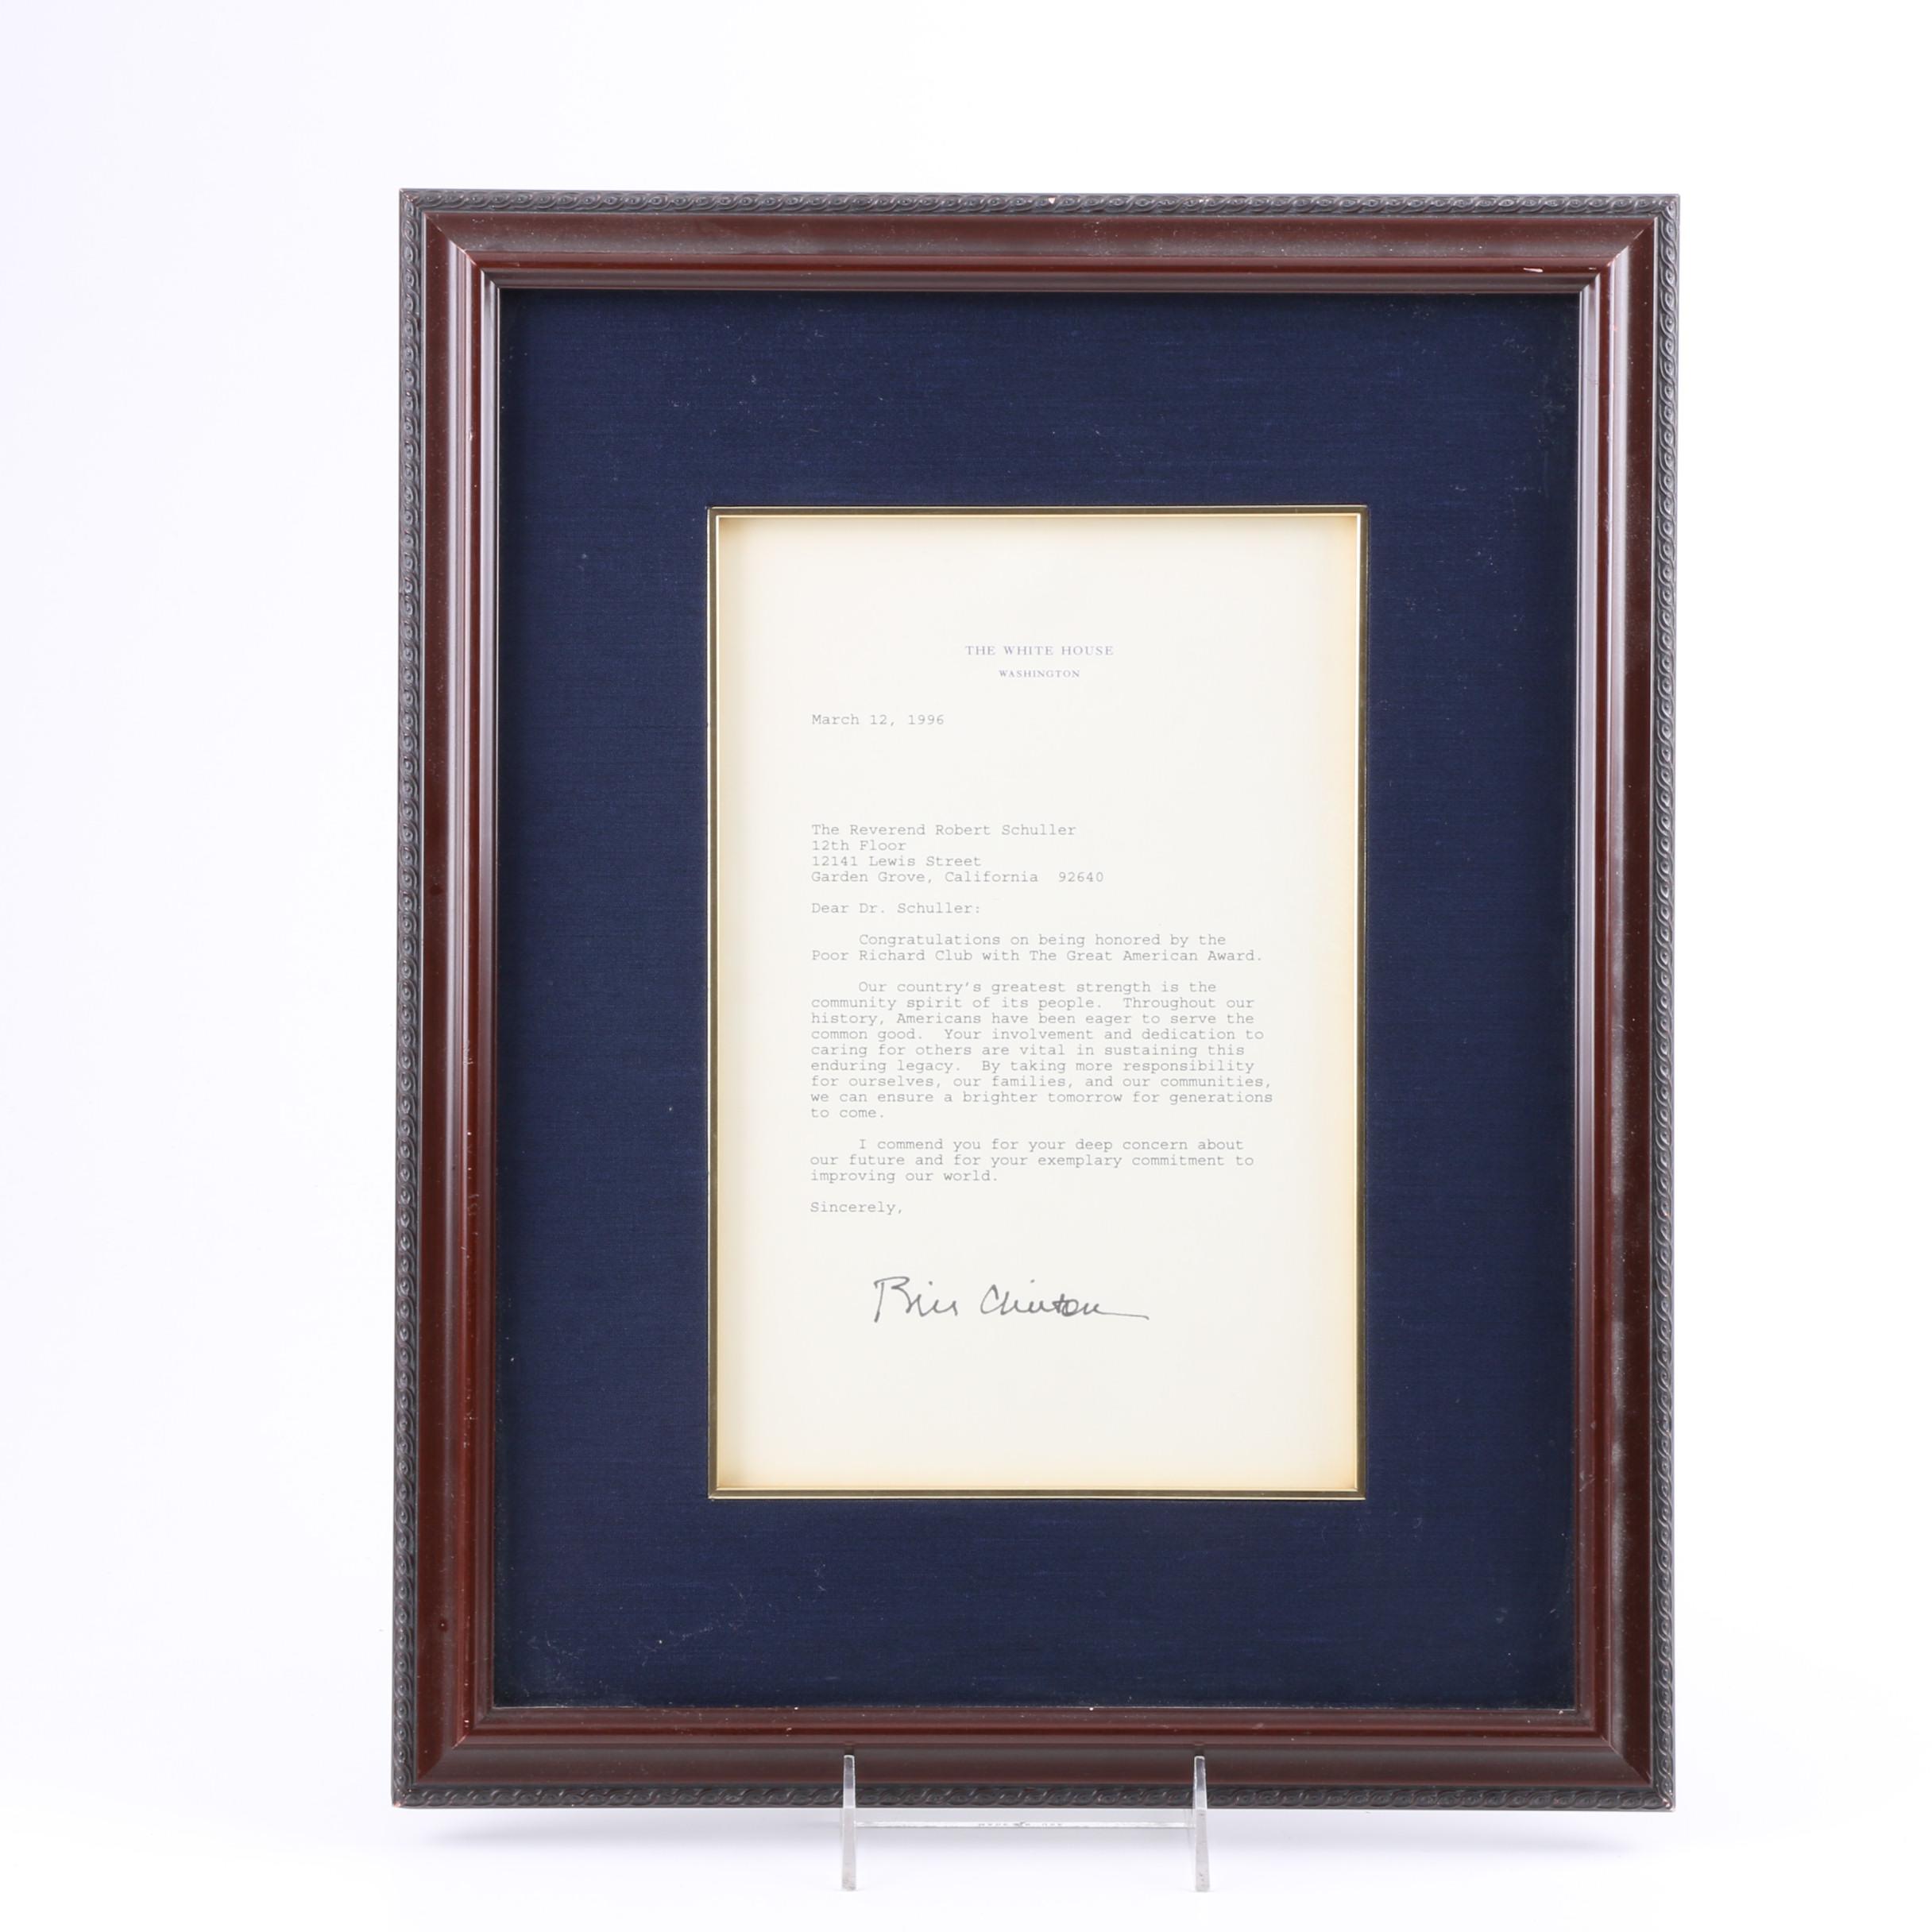 THE WHITE HOUSE
WASHINGTON
March 12, 1996
The Reverend Robert Schuller
12th Floor
12141 Lewis Street
Garden Grove, California  92640
Dear Dr. Schuller:
Congratulations on being honored by the
Poor Richard Club with The Great American Award.
Our country's greatest strength is the
community spirit of its people.  Throughout our
history, Americans have been eager to serve the
common good.  Your involvement and dedication to
caring for others are vital in sustaining this
enduring legacy.  By taking more responsibility
for ourselves, our families, and our communities,
we can ensure a brighter tomorrow for generations
to come.
I commend you for your deep concern about
our future and for your exemplary commitment to
improving our world.
Sincerely,
Bill Clinton